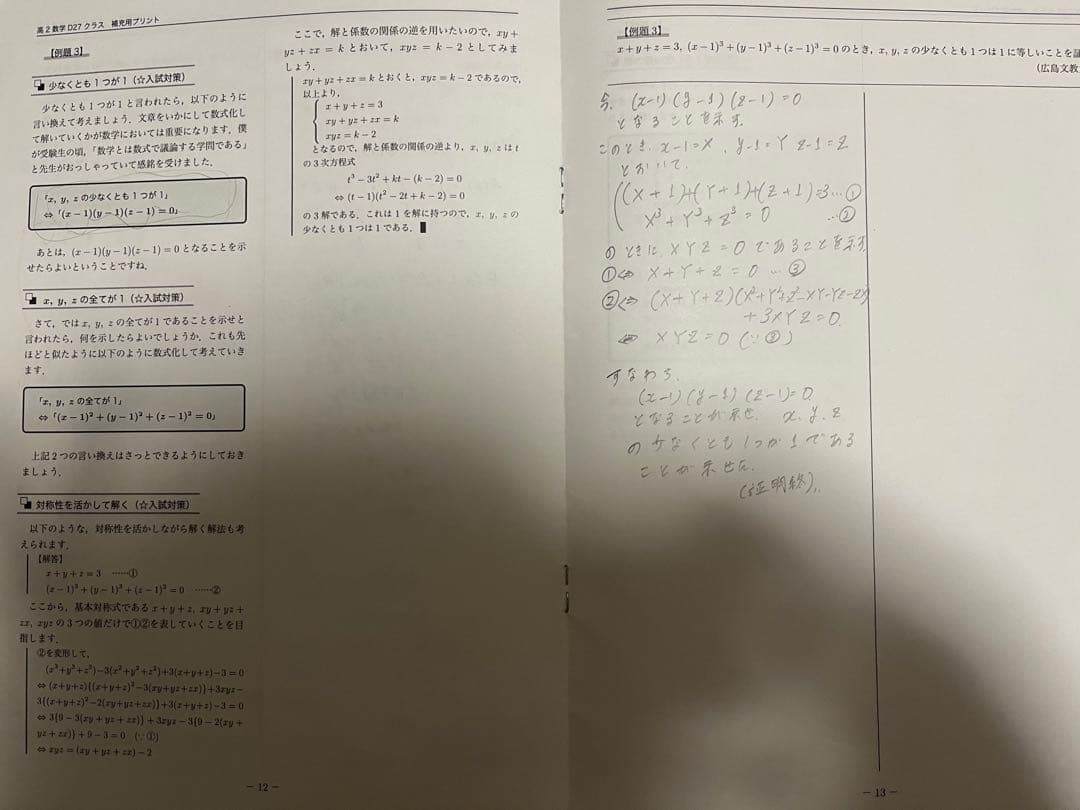 高2数学D27クラス 補充用プリント
【例題3】
少なくとも1つが1(☆入試対策)
少なくとも1つが1と言われたら,以下のように
言い換えて考えましょう.文章をいかにして数式化し
て解いていくかが数学においては重要になります.僕
が受験生の頃,「数学とは数式で議論する学問である」
と先生がおっしゃっていて感銘を受けました.
「x, y, z の少なくとも1つが1」
⇔「(x − 1)(y − 1)(z − 1) = 0」
あとは,(x − 1)(y − 1)(z − 1) = 0 となることを示
せたらよいということですね.
x, y, z の全てが1(☆入試対策)
さて,では x, y, z の全てが1であることを示せと
言われたら,何を示したらよいでしょうか.これも先
ほどと似たように以下のように数式化して考えていき
ます.
「x, y, z の全てが1」
⇔「(x − 1)² + (y − 1)² + (z − 1)² = 0」
上記2つの言い換えはさっとできるようにしておき
ましょう.
対称性を活かして解く(☆入試対策)
以下のような,対称性を活かしながら解く解法も考
えられます.
【解答】
x + y + z = 3 ……①
(x − 1)³ + (y − 1)³ + (z − 1)³ = 0 ……②
ここから,基本対称式である x + y + z, xy + yz +
zx, xyz の3つの値だけで①②を表していくことを目
指します.
②を変形して,
(x³+y³+z³)−3(x²+y²+z²)+3(x+y+z)−3 = 0
⇔ (x+y+z){(x+y+z)²−3(xy+yz+zx)}+3xyz−
3{(x+y+z)²−2(xy+yz+zx)}+3(x+y+z)−3 = 0
⇔ 3{9 − 3(xy + yz + zx)} + 3xyz − 3{9 − 2(xy +
yz + zx)} + 9 − 3 = 0 (∵①)
⇔ xyz = (xy + yz + zx) − 2
− 12 −
ここで,解と係数の関係の逆を用いたいので,xy +
yz + zx = k とおいて,xyz = k − 2 としてみま
しょう.
xy + yz + zx = k とおくと,xyz = k − 2 であるので,
以上より,
x + y + z = 3
xy + yz + zx = k
xyz = k − 2
となるので,解と係数の関係の逆より,x, y, z は t
の3次方程式
t³ − 3t² + kt − (k − 2) = 0
⇔ (t − 1)(t² − 2t + k − 2) = 0
の3解である.これは1を解に持つので,x, y, z の
少なくとも1つは1である.
【例題3】
x + y + z = 3, (x−1)³ + (y−1)³ + (z−1)³ = 0 のとき, x, y, z の少なくとも1つは1に等しいことを証
(広島文教
今. (x−1)(y−1)(z−1)=0
となることを示す.
このとき, x−1=X, y−1=Y z−1=Z
とおいて.
(X+1)+(Y+1)+(Z+1)=3…①
X³+Y³+Z³=0 …②
のときに XYZ=0 であることを示す.
①⇔ X+Y+Z=0 …③
②⇔ (X+Y+Z)(X²+Y²+Z²−XY−YZ−ZX)
+3XYZ=0.
⇔ XYZ=0 (∵③)
すなわち.
(x−1)(y−1)(z−1)=0
となることが示せ. x, y, z
の少なくとも1つが1である
ことが示せた.
(証明終).
− 13 −